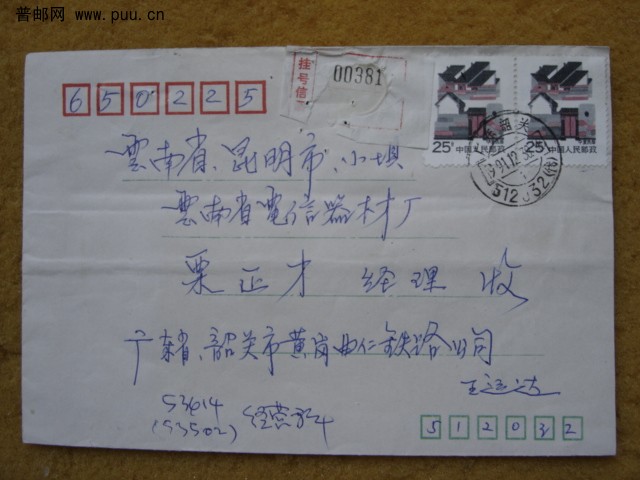 普邮网 www.puu.cn
挂号信
00381
650225
25分 中国人民邮政
25分 中国人民邮政
512032
雲南省、昆明市、小坝
雲南省電信器材厂
栗正才 经理 收
广东省、韶关市黄岗曲仁铁路公司
王运达
53614
(53502) 经营科
512032